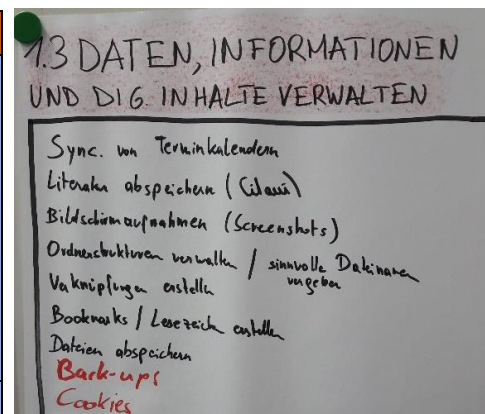 1.3 DATEN, INFORMATIONEN
UND DIG. INHALTE VERWALTEN
Sync. von Terminkalendern
Literatur abspeichern (Citavi)
Bildschirmaufnahmen (Screenshots)
Ordnerstrukturen verwalten / sinnvolle Dateinamen
vergeben
Verknüpfungen erstellen
Bookmarks / Lesezeich erstellen
Dateien abspeichern
Back-ups
Cookies